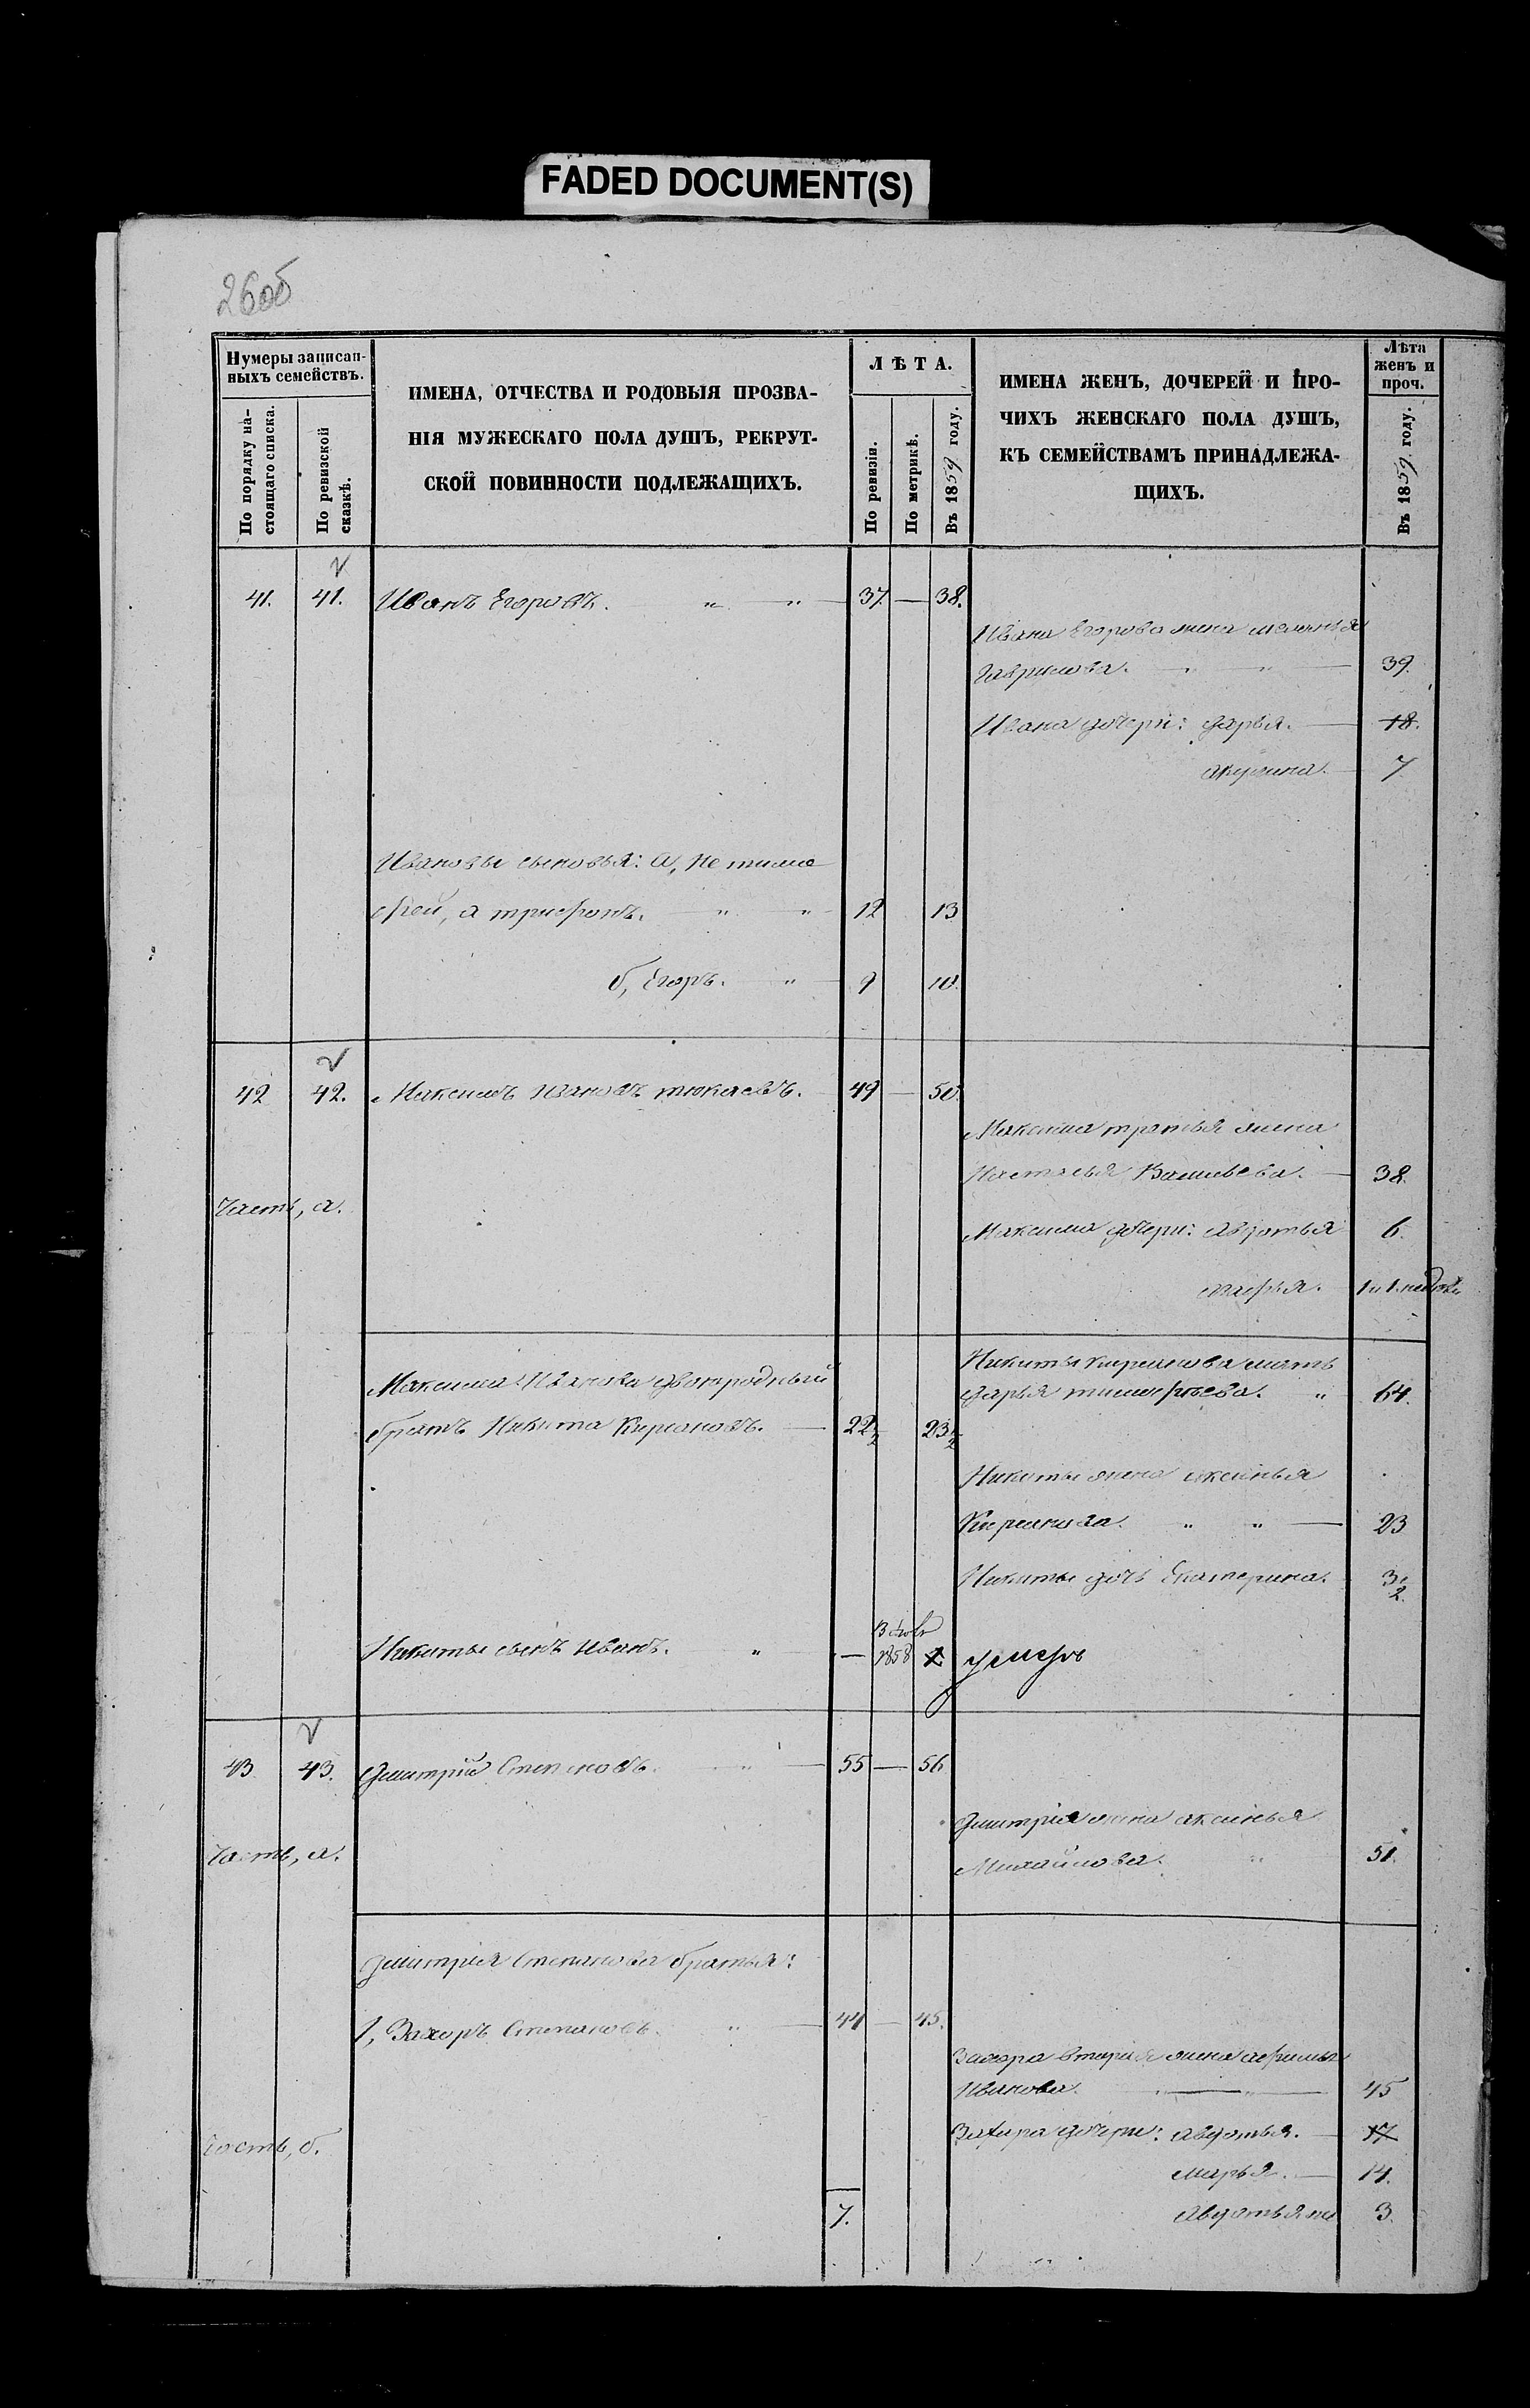 FADED DOCUMENT(S)
26об
Нумеры записан-
ныхъ семействъ.
По порядку на-
стоящаго списка.
По ревизской
сказкѣ.
ИМЕНА, ОТЧЕСТВА И РОДОВЫЯ ПРОЗВА-
НІЯ МУЖЕСКАГО ПОЛА ДУШЪ, РЕКРУТ-
СКОЙ ПОВИННОСТИ ПОДЛЕЖАЩИХЪ.
ЛѢТА.
По ревизіи.
По метрикѣ.
Въ 1859 году.
ИМЕНА ЖЕНЪ, ДОЧЕРЕЙ И ПРО-
ЧИХЪ ЖЕНСКАГО ПОЛА ДУШЪ,
КЪ СЕМЕЙСТВАМЪ ПРИНАДЛЕЖА-
ЩИХЪ.
Лѣта
женъ и
проч.
Въ 1859 году.
41. 41. Иванъ Егоровъ. " " 37. — 38.
Ивана Егорова жена Меланья
Гаврилова. " " 39.
Ивана дочери: Дарья. 18.
Акулина. 7
Ивановы сыновья: а, не Тимо
фей, а Трифонъ. " " 12 13
б, Егоръ. " 9 10.
42 42. Максимъ Ивановъ Тюкаевъ. 49 — 50.
Максима третья жена
Настасья Васильева. 38.
Часть, а.
Максима дочери: Авдотья 6.
Марья. 1 и 1 недѣли
Никиты Кирьянова мать
Максима Иванова двоюродный
Дарья Тимофѣева. " 64.
братъ Никита Кирьяновъ. 22½ 23½
Никиты жена Аксинья
Кирьянова. " " 23
Никиты дочь Екатерина. 3½
Никиты сынъ Иванъ. " — 1858 умеръ
43 43. Дмитрій Степановъ. " 55 — 56
Дмитрія жена Аксинья
Часть, а.
Михайлова. " 51.
Дмитрія Степанова братья:
1, Захоръ Степановъ. " 44 — 45.
Захора вторая жена Афимья
Иванова. " " 45
Захора дочери: Авдотья. 17
Часть, б.
Марья. 14.
7. Авдотья же 3.